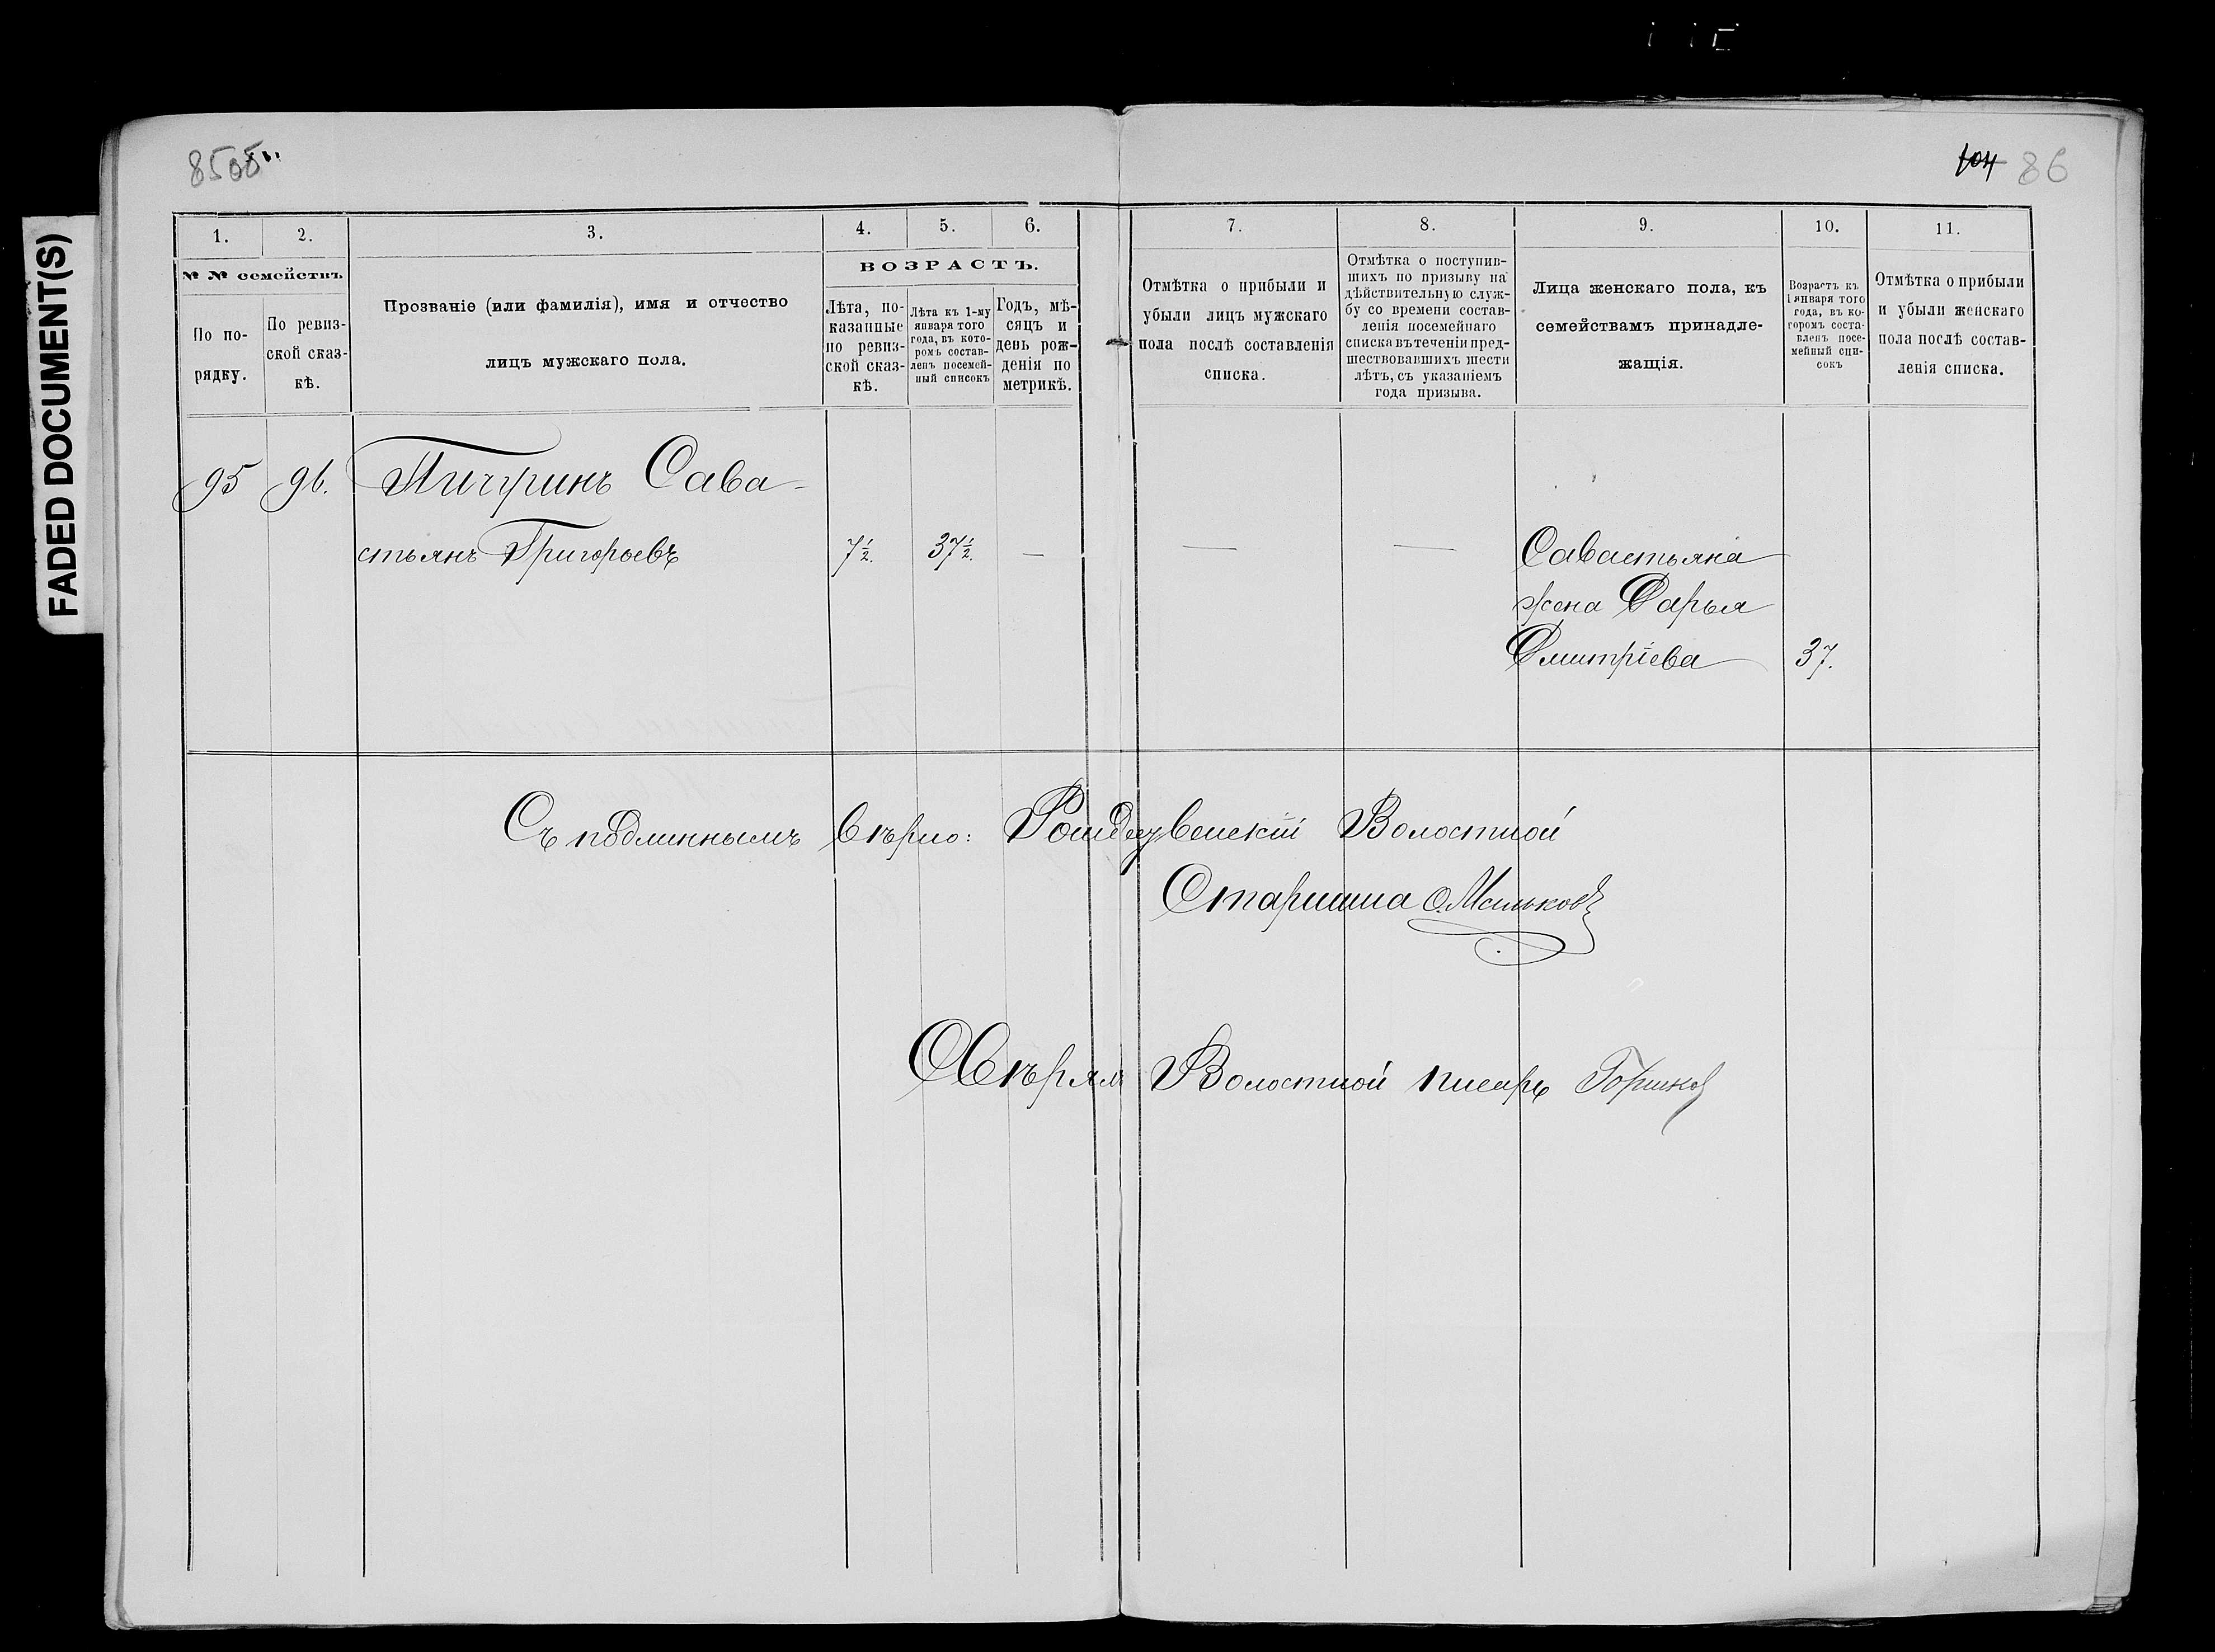 FADED DOCUMENT(S)
104 86
1.
2.
3.
4.
5.
6.
7.
8.
9.
10.
11.
№ № семействъ.
По по-
рядку.
По ревиз-
ской сказ-
кѣ.
Прозваніе (или фамилія), имя и отчество
лицъ мужскаго пола.
ВОЗРАСТЪ.
Лѣта, по-
казанные
по ревиз-
ской сказ-
кѣ.
Лѣта къ 1-му
января того
года, въ кото-
ромъ состав-
ленъ посемей-
ный списокъ
Годъ, мѣ-
сяцъ и
день рож-
денія по
метрикѣ.
Отмѣтка о прибыли и
убыли лицъ мужскаго
пола послѣ составленія
списка.
Отмѣтка о поступив-
шихъ по призыву на
дѣйствительную служ-
бу со времени состав-
ленія посемейнаго
списка въ теченіи пред-
шествовавшихъ шести
лѣтъ, съ указаніемъ
года призыва.
Лица женскаго пола, къ
семействамъ принадле-
жащія.
Возрастъ къ
1 января того
года, въ ко-
горомъ соста-
вленъ посе-
мейный спи-
сокъ
Отмѣтка о прибыли
и убыли женскаго
пола послѣ состав-
ленія списка.
95 96. Сава-
стьянъ Григорьевъ 7½. 37½. — — — Савастьяна
жена Дарья
Дмитріева 37.
Съ подлиннымъ вѣрно: Волостной
Старшина
Свѣрялъ Волостной писарь Горшков